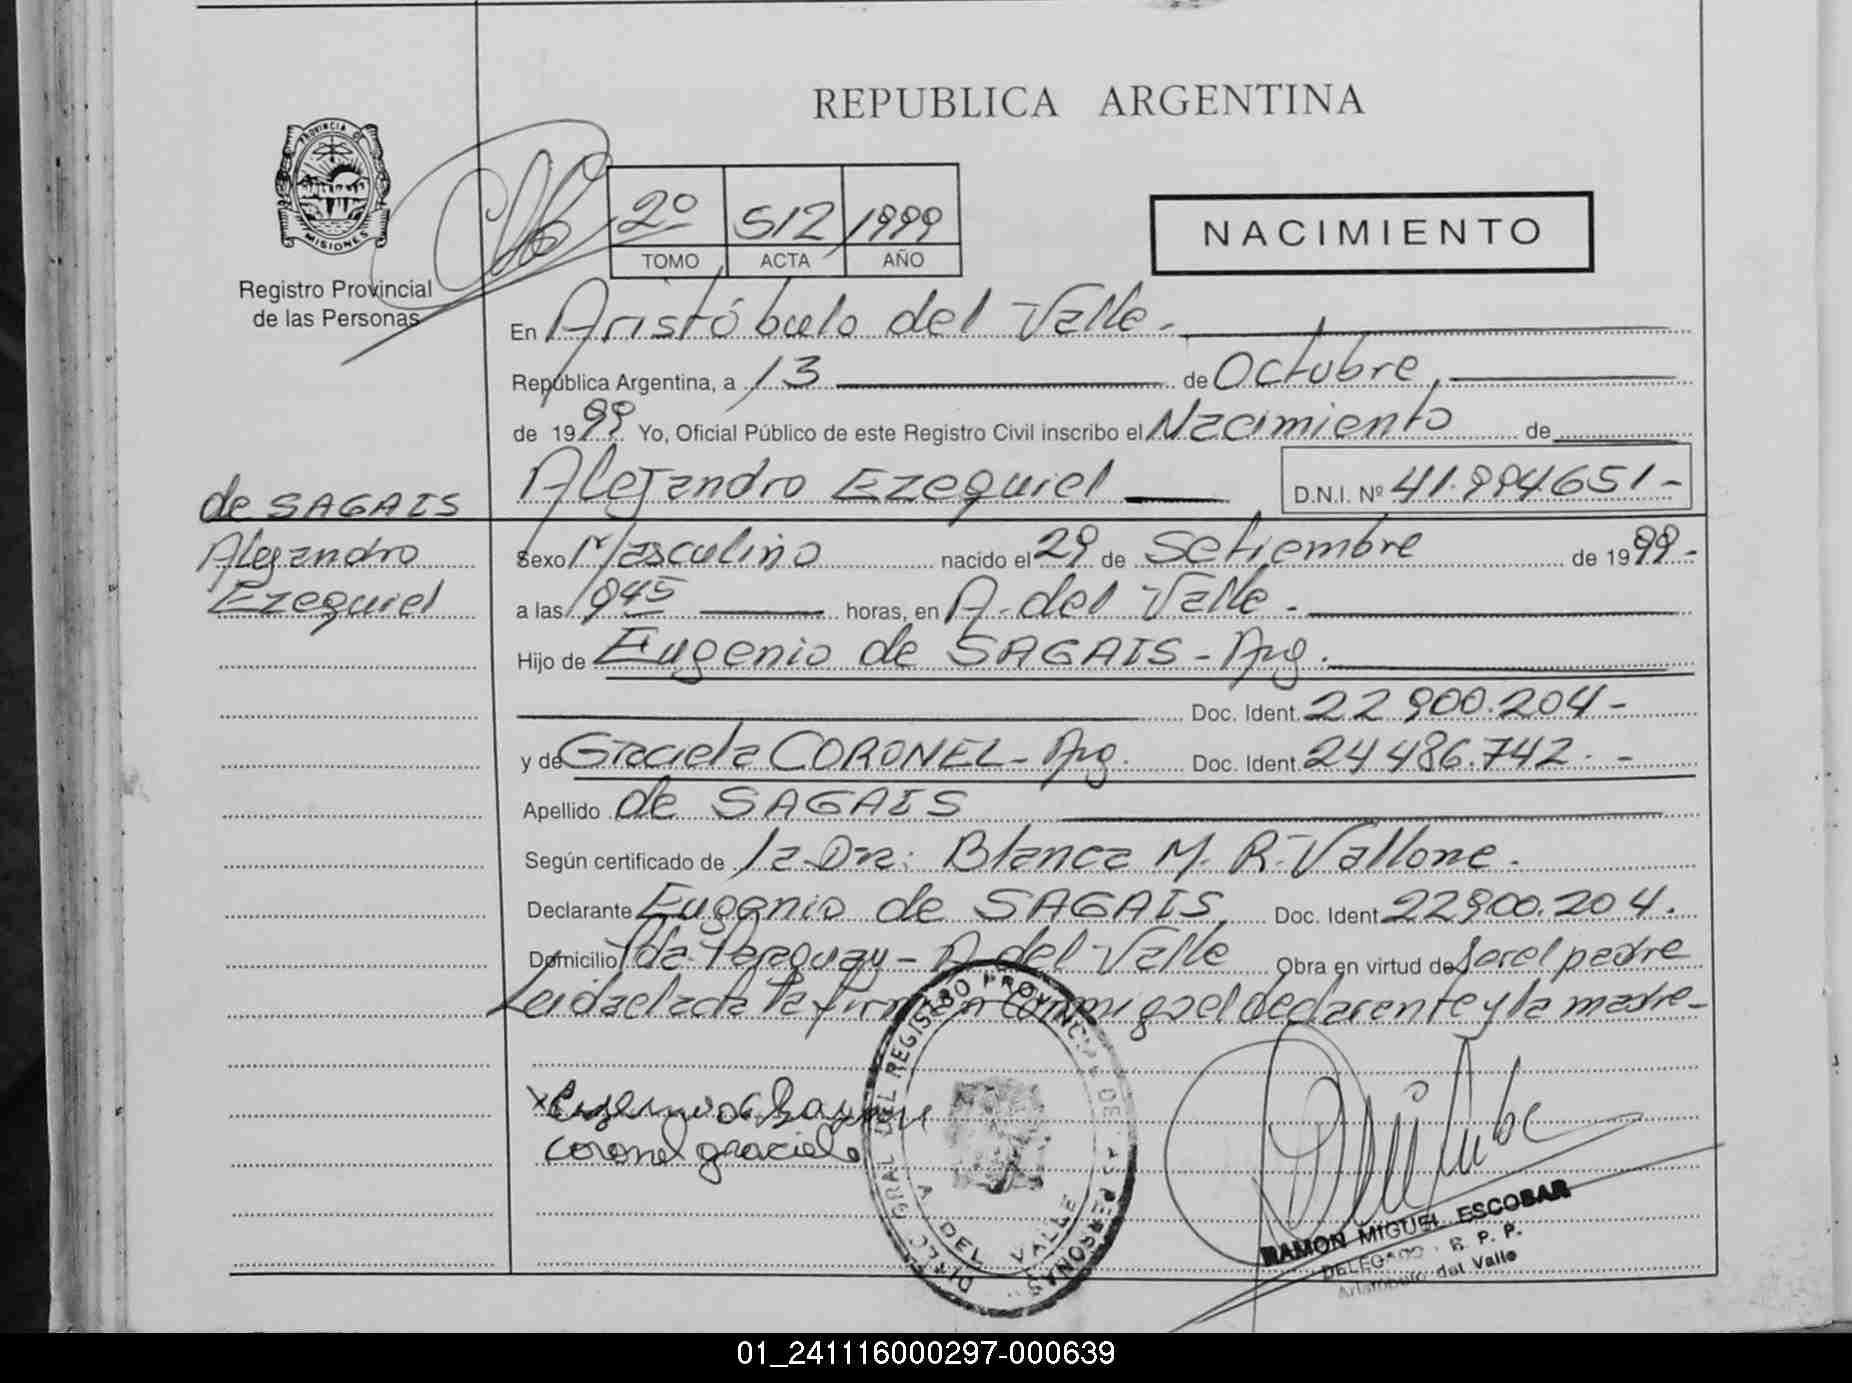 REPUBLICA ARGENTINA
PROVINCIA DE
MISIONES
Registro Provincial
de las Personas
2º 512 1999
TOMO ACTA AÑO
NACIMIENTO
En Aristóbulo del Valle.
República Argentina, a 13 de Octubre,
de 1999 Yo, Oficial Público de este Registro Civil inscribo el Nacimiento de
Alejandro Ezequiel D.N.I. Nº 41.994651-
de SAGAIS
Alejandro
Ezequiel
Sexo Masculino nacido el 29 de Setiembre de 1999-
a las 1945 horas, en A. del Valle.
Hijo de Eugenio de SAGAIS - Arg.
Doc. Ident. 22 900.204-
y de Graciela CORONEL - Arg. Doc. Ident. 24 486.742.-
Apellido de SAGAIS
Según certificado de la Dra: Blanca M. R. Vallone.
Declarante Eugenio de SAGAIS, Doc. Ident. 22900.204.
Domicilio Pda. Paraguay - A. del Valle Obra en virtud de ser el padre
Leida el acta la firman conmigo el declarante y la madre-
coronel graciela
DIREC. GRAL DEL REGISTRO PROVINCIAL DE LAS PERSONAS
A. DEL VALLE
RAMON MIGUEL ESCOBAR
DELEGADO R. P. P.
Aristobulo del Valle
01_241116000297-000639